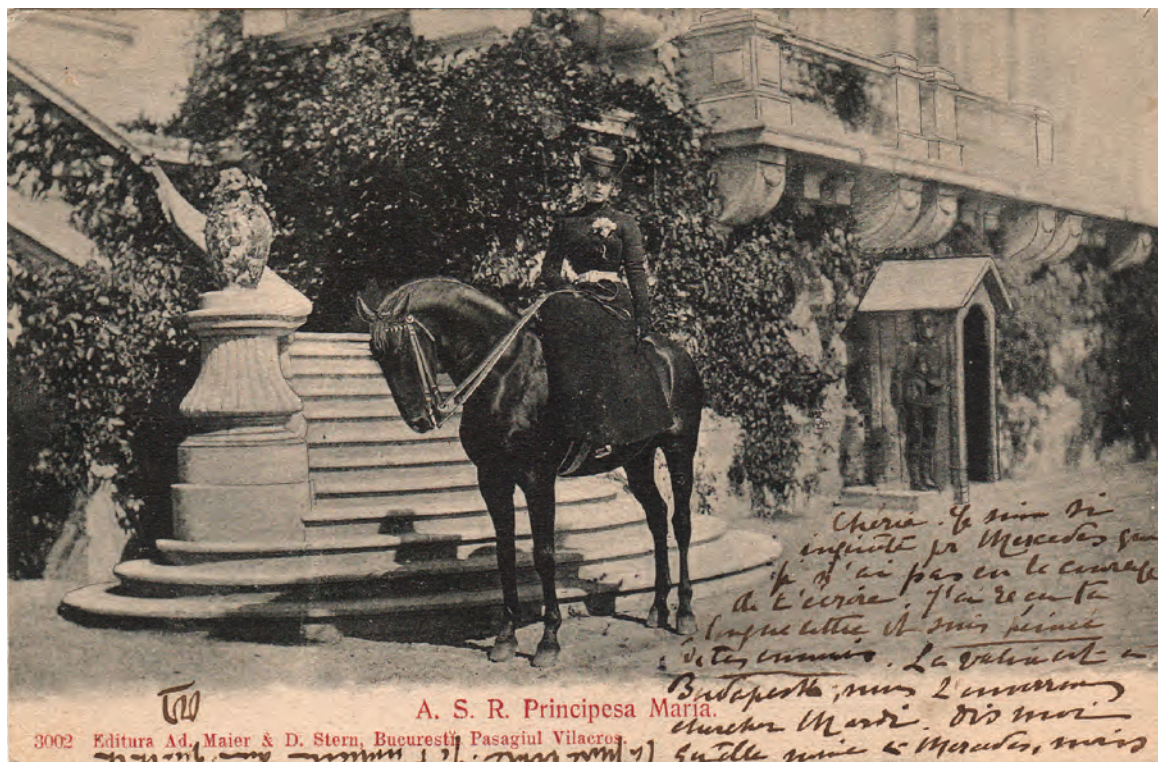 Chérie. Je suis si
inquiète pr Mercedes que
je n'ai pas eu le courage
de t'écrire. J'ai reçu ta
longue lettre et suis peinée
de tes ennuis. La valise est à
Budapest, nous l'enverrons
chercher Mardi. Dis moi
à Mercedes, mais
A. S. R. Principesa Maria.
3002 Editura Ad. Maier & D. Stern, Bucuresti, Pasagiul Vilacros.